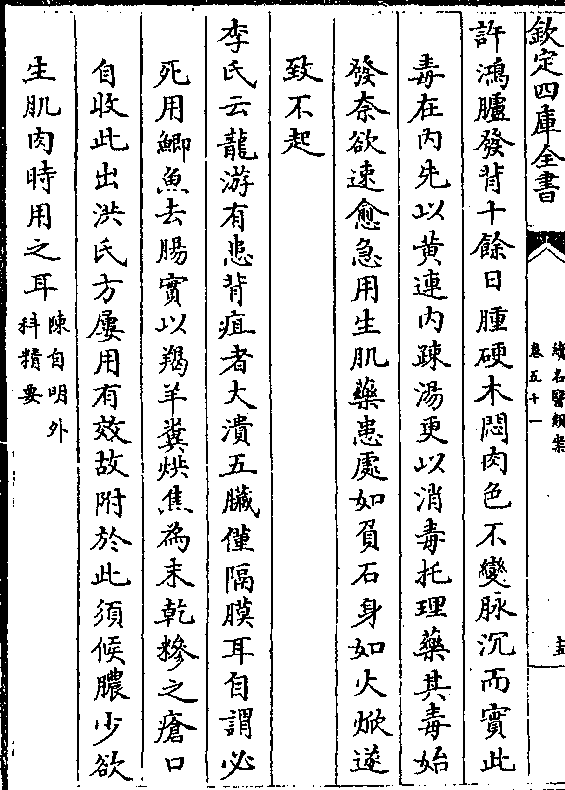 欽定四庫全書
續名醫類案
卷五十一
許鴻臚發背十餘日腫硬木悶肉色不變脉沉而實此
毒在内先以黄連内疎湯更以消毒托理藥其毒始
發奈欲速愈急用生肌藥患處如負石身如火焮遂
致不起
李氏云龍游有患背疽者大潰五臟僅隔膜耳自謂必
死用鯽魚去腸實以羯羊糞烘焦為末乾糝之瘡口
自收此出洪氏方屢用有效故附於此須候膿少欲
生肌肉時用之耳陳自明外
科精要